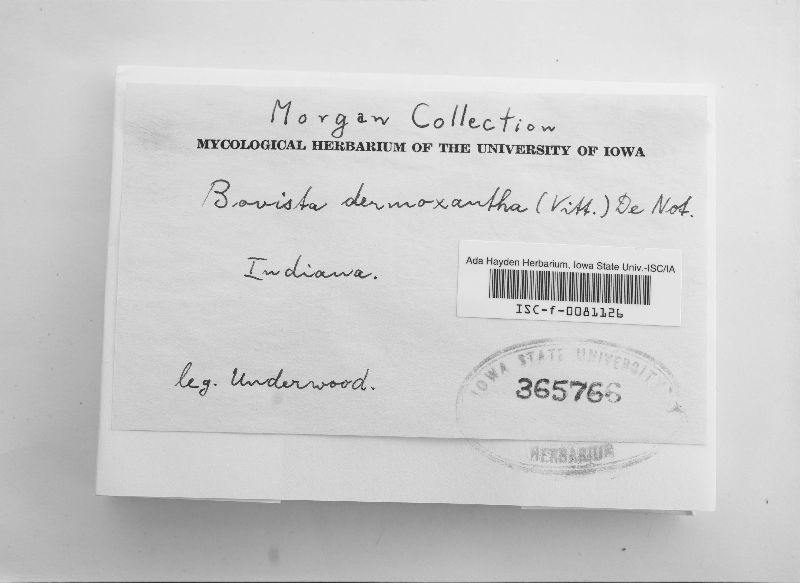 Morgan Collection
MYCOLOGICAL HERBARIUM OF THE UNIVERSITY OF IOWA
Bovista dermoxantha (Vitt.) De Not.
Indiana.
Ada Hayden Herbarium, Iowa State Univ.-ISC/IA
ISC-f-0081126
leg. Underwood.
IOWA STATE UNIVERSITY
365766
HERBARIUM